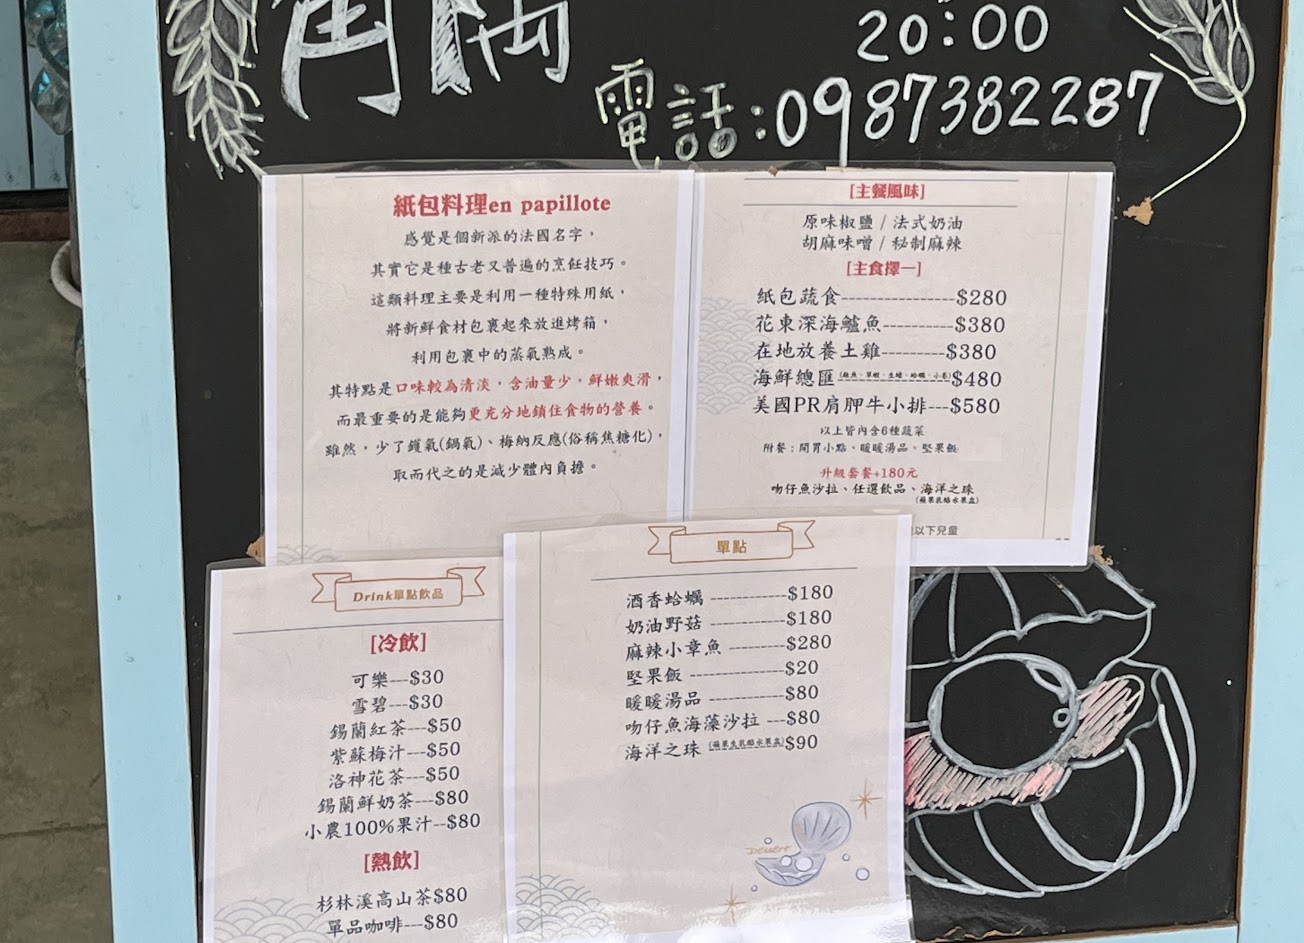 角隅
20:00
電話:0987382287
紙包料理en papillote
感覺是個新派的法國名字，
其實它是種古老又普遍的烹飪技巧。
這類料理主要是利用一種特殊用紙，
將新鮮食材包裹起來放進烤箱，
利用包裹中的蒸氣熟成。
其特點是口味較為清淡，含油量少，鮮嫩爽滑，
而最重要的是能夠更充分地鎖住食物的營養。
雖然，少了鑊氣(鍋氣)、梅納反應(俗稱焦糖化)，
取而代之的是減少體內負擔。
[主餐風味]
原味椒鹽 / 法式奶油
胡麻味噌 / 秘制麻辣
[主食擇一]
紙包蔬食---------------$280
花東深海鱸魚----------$380
在地放養土雞---------$380
海鮮總匯$480
美國PR肩胛牛小排---$580
以上皆內含6種蔬菜
附餐：開胃小點、暖暖湯品、堅果飯
升級套餐+180元
吻仔魚沙拉、任選飲品、海洋之珠
(蘋果乳酪水果盅)
以下兒童
Drink單點飲品
[冷飲]
可樂---$30
雪碧---$30
錫蘭紅茶---$50
紫蘇梅汁---$50
洛神花茶---$50
錫蘭鮮奶茶---$80
小農100%果汁--$80
[熱飲]
杉林溪高山茶$80
單品咖啡---$80
單點
酒香蛤蠣 ------------$180
奶油野菇 ------------$180
麻辣小章魚 ---------$280
堅果飯 --------------$20
暖暖湯品------------$80
吻仔魚海藻沙拉 ---$80
海洋之珠 $90
Dessert